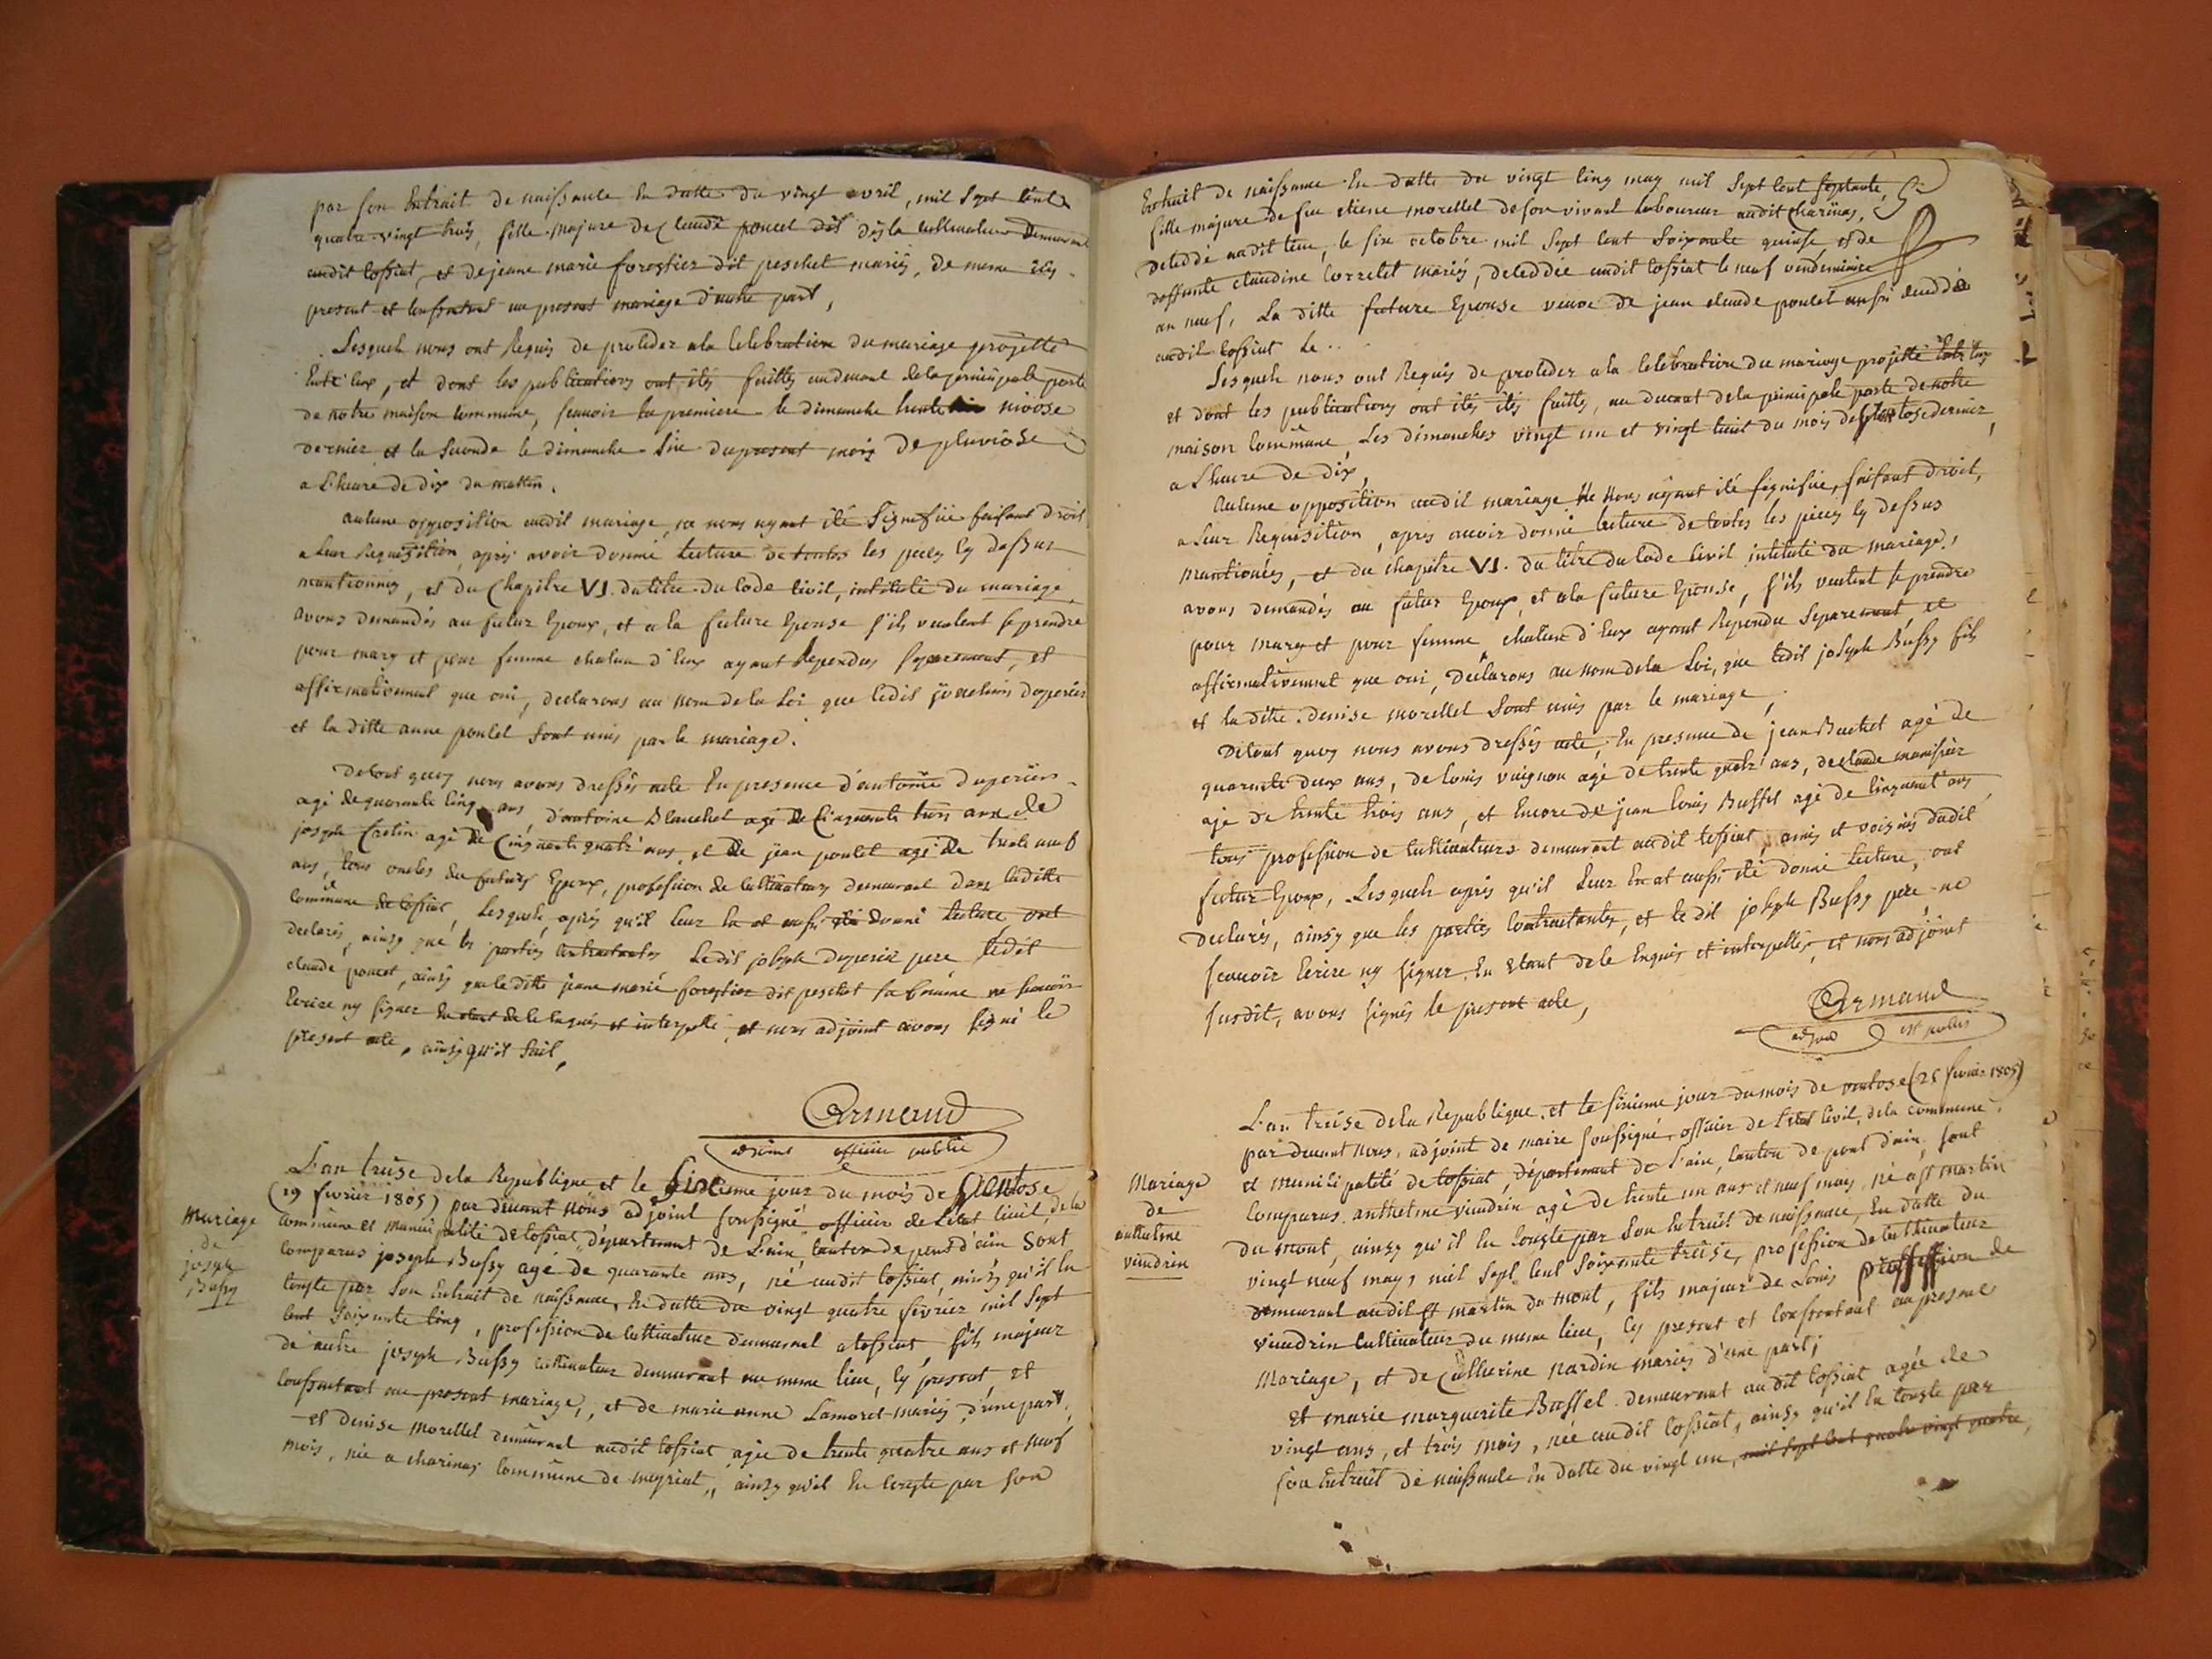 par son Extrait de naissance En datte du vingt avril, mil sept cent
quatre vingt trois, fille majure de Claude poncet dit cultivateur demeurant
audit tossiat, et de jeane marie forestier dit peschet mariés, de meme icy
present et consentant au present mariage d'autre part,
Lesquels nous ont Requis de proceder a la celebration du mariage projetté
Entr'eux, et dont les publications ont étés faittes au devant de la principale porte
de notre maison commune, scavoir la premiere le dimanche trente nivose
dernier et la seconde le dimanche du present mois de pluviose
a L'heure de dix du mattin.
aucune opposition audit mariage ne nous ayant été signifiié faisant droit
a leur Requisition, après avoir donné lecture de toutes les pieces cy dessus
mantionnes, et du Chapitre VI. du titre du code civil, intitulé du mariage,
avons demandés au futur Epoux, et a la future Epouse s'ils veulent se prendre
pour mary et pour femme chacun d'Eux ayant Repondus separement, et
affirmativement que oui, declarons au nom de la Loi que ledit joachim duperier
et la ditte anne poncet sont unis par le mariage.
De tout quoy nous avons dressés acte En presence d'antoine duperier
agé de quarante cinq ans, d'antoine Blanchet agé de Cinquante trois ans de
joseph agé de Cinquante quatr' ans, et de jean poncet agé de trente neuf
ans, tous oncles du futurs Epoux, profession de cultivateurs demeurant dans laditte
commune de tossiat, Lesquels, après qu'il leur En at aussi été donné lecture ont
declarés, ainsy que les parties contractantes Ledit joseph duperier pere ledit
claude poncet, ainsy que la ditte jeane marie forestier dit peschet sa femme ne scavoir
Ecrire ny signer En etant de ce Enquis et interpellé, et nous adjoint avons signé le
present acte, ainsy qu'il suit,
Armand
adjoint officier public
L'an treise de la Republique et le jour du mois de ventose
(19 fevrier 1805) par devant Nous adjoint soussigné officier de L'etat civil, de la
commune et municipalité de tossiat, département de L'ain, canton de pont d'ain sont
Mariage
de
joseph
Bussy
comparus joseph Bussy agé de quarante ans, né audit tossiat, ainsy qu'il En
conste par Son Extrait de naissance, En datte du vingt quatre fevrier mil sept
cent soixante cinq, profession de cultivateur demeurant a tossiat, fils majeur
de autre joseph Bussy cultivateur demeurant au meme lieu, cy present et
consentant au present mariage, et de marie anne Lamoret mariés, d'une part,
et denise morellet demeurant audit tossiat agée de trente quatre ans et neuf
mois, née a charinas commune de meyriat, ainsy qu'il En conste par son
Extrait de naissance En datte du vingt cinq may mil sept cent septante,
fille majure de feu etiene morellet de son vivant laboureur audit charinas,
deceddé audit lieu, le six octobre mil sept cent soixante quinse, et de
deffunte claudine mariés, deceddée audit tossiat le neuf vendemiaire
an neuf, La ditte future Epouse veuve de jean claude poncet aussi deceddé
audit tossiat le ..
Lesquels nous ont Requis de proceder a la celebration du mariage projetté Entr'Eux
et dont les publications ont étés étés faittes, au devant de la principale porte de notre
maison commune, Les dimanches vingt un et vingt huit du mois de dernier,
a L'heure de dix,
Aucune opposition audit mariage ne nous ayant été signifiie, faisant droit,
a Leur Requisition, après avoir donné lecture de toutes les pieces cy dessus
mantionées, et du chapitre VI. du titre du code civil intitulé du mariage,
avons demandés au futur Epoux, et a la future Epouse, s'ils veulent se prendre
pour mary et pour femme, chacun d'Eux ayant Repondu separement et
affirmativement que oui, Declarons au nom de la Loi, que ledit joseph Bussy fils
et la ditte denise morellet sont unis par le mariage,
De tout quoy nous avons dressés acte, En presence de jean Buchet agé de
quarante deux ans, de Louis vuignon agé de trente quatr' ans, de Claude
agé de trente trois ans, et Encore de jean Louis Buffet agé de cinquant' ans
tous profession de cultivateurs demeurant audit tossiat, amis et voisins dudit
futur Epoux, Lesquels après qu'il leur En at aussi été donné lecture, ont
declarés, ainsy que les parties contractantes, et le dit joseph Bussy pere, ne
scavoir Ecrire ny signer En Etant de ce Enquis et interpellés, et nous adjoint
susdit, avons signés le present acte,
Armand
L'an treise de la Republique et le sixieme jour du mois de ventose (25 fevrier 1805)
par devant nous, adjoint de maire soussigné, officier de l'état civil, de la commune
et municipalité de tossiat, département de L'ain, canton de pont d'ain, sont
Mariage
de
anthelme
vuidrin
comparus anthelme vuidrin agé de trente un ans et neuf mois, né a st martin
du mont, ainsy qu'il En conste par Son Extrait de naissance, En datte du
vingt neuf may, mil sept cent soixante treise, profession de cultivateur
demeurant audit st martin du mont, fils majeur de Louis proffession de
vuidrin cultivateur du meme lieu, cy present et consentant au present
Mariage, et de Catherine nardin mariés d'une part,
Et marie marguerite Buffet demeurant audit tossiat agée de
vingt ans, et trois mois, née audit tossiat, ainsy qu'il En conste par
son Extrait de naissance En datte du vingt un, mil sept cent quatre vingt quatre,